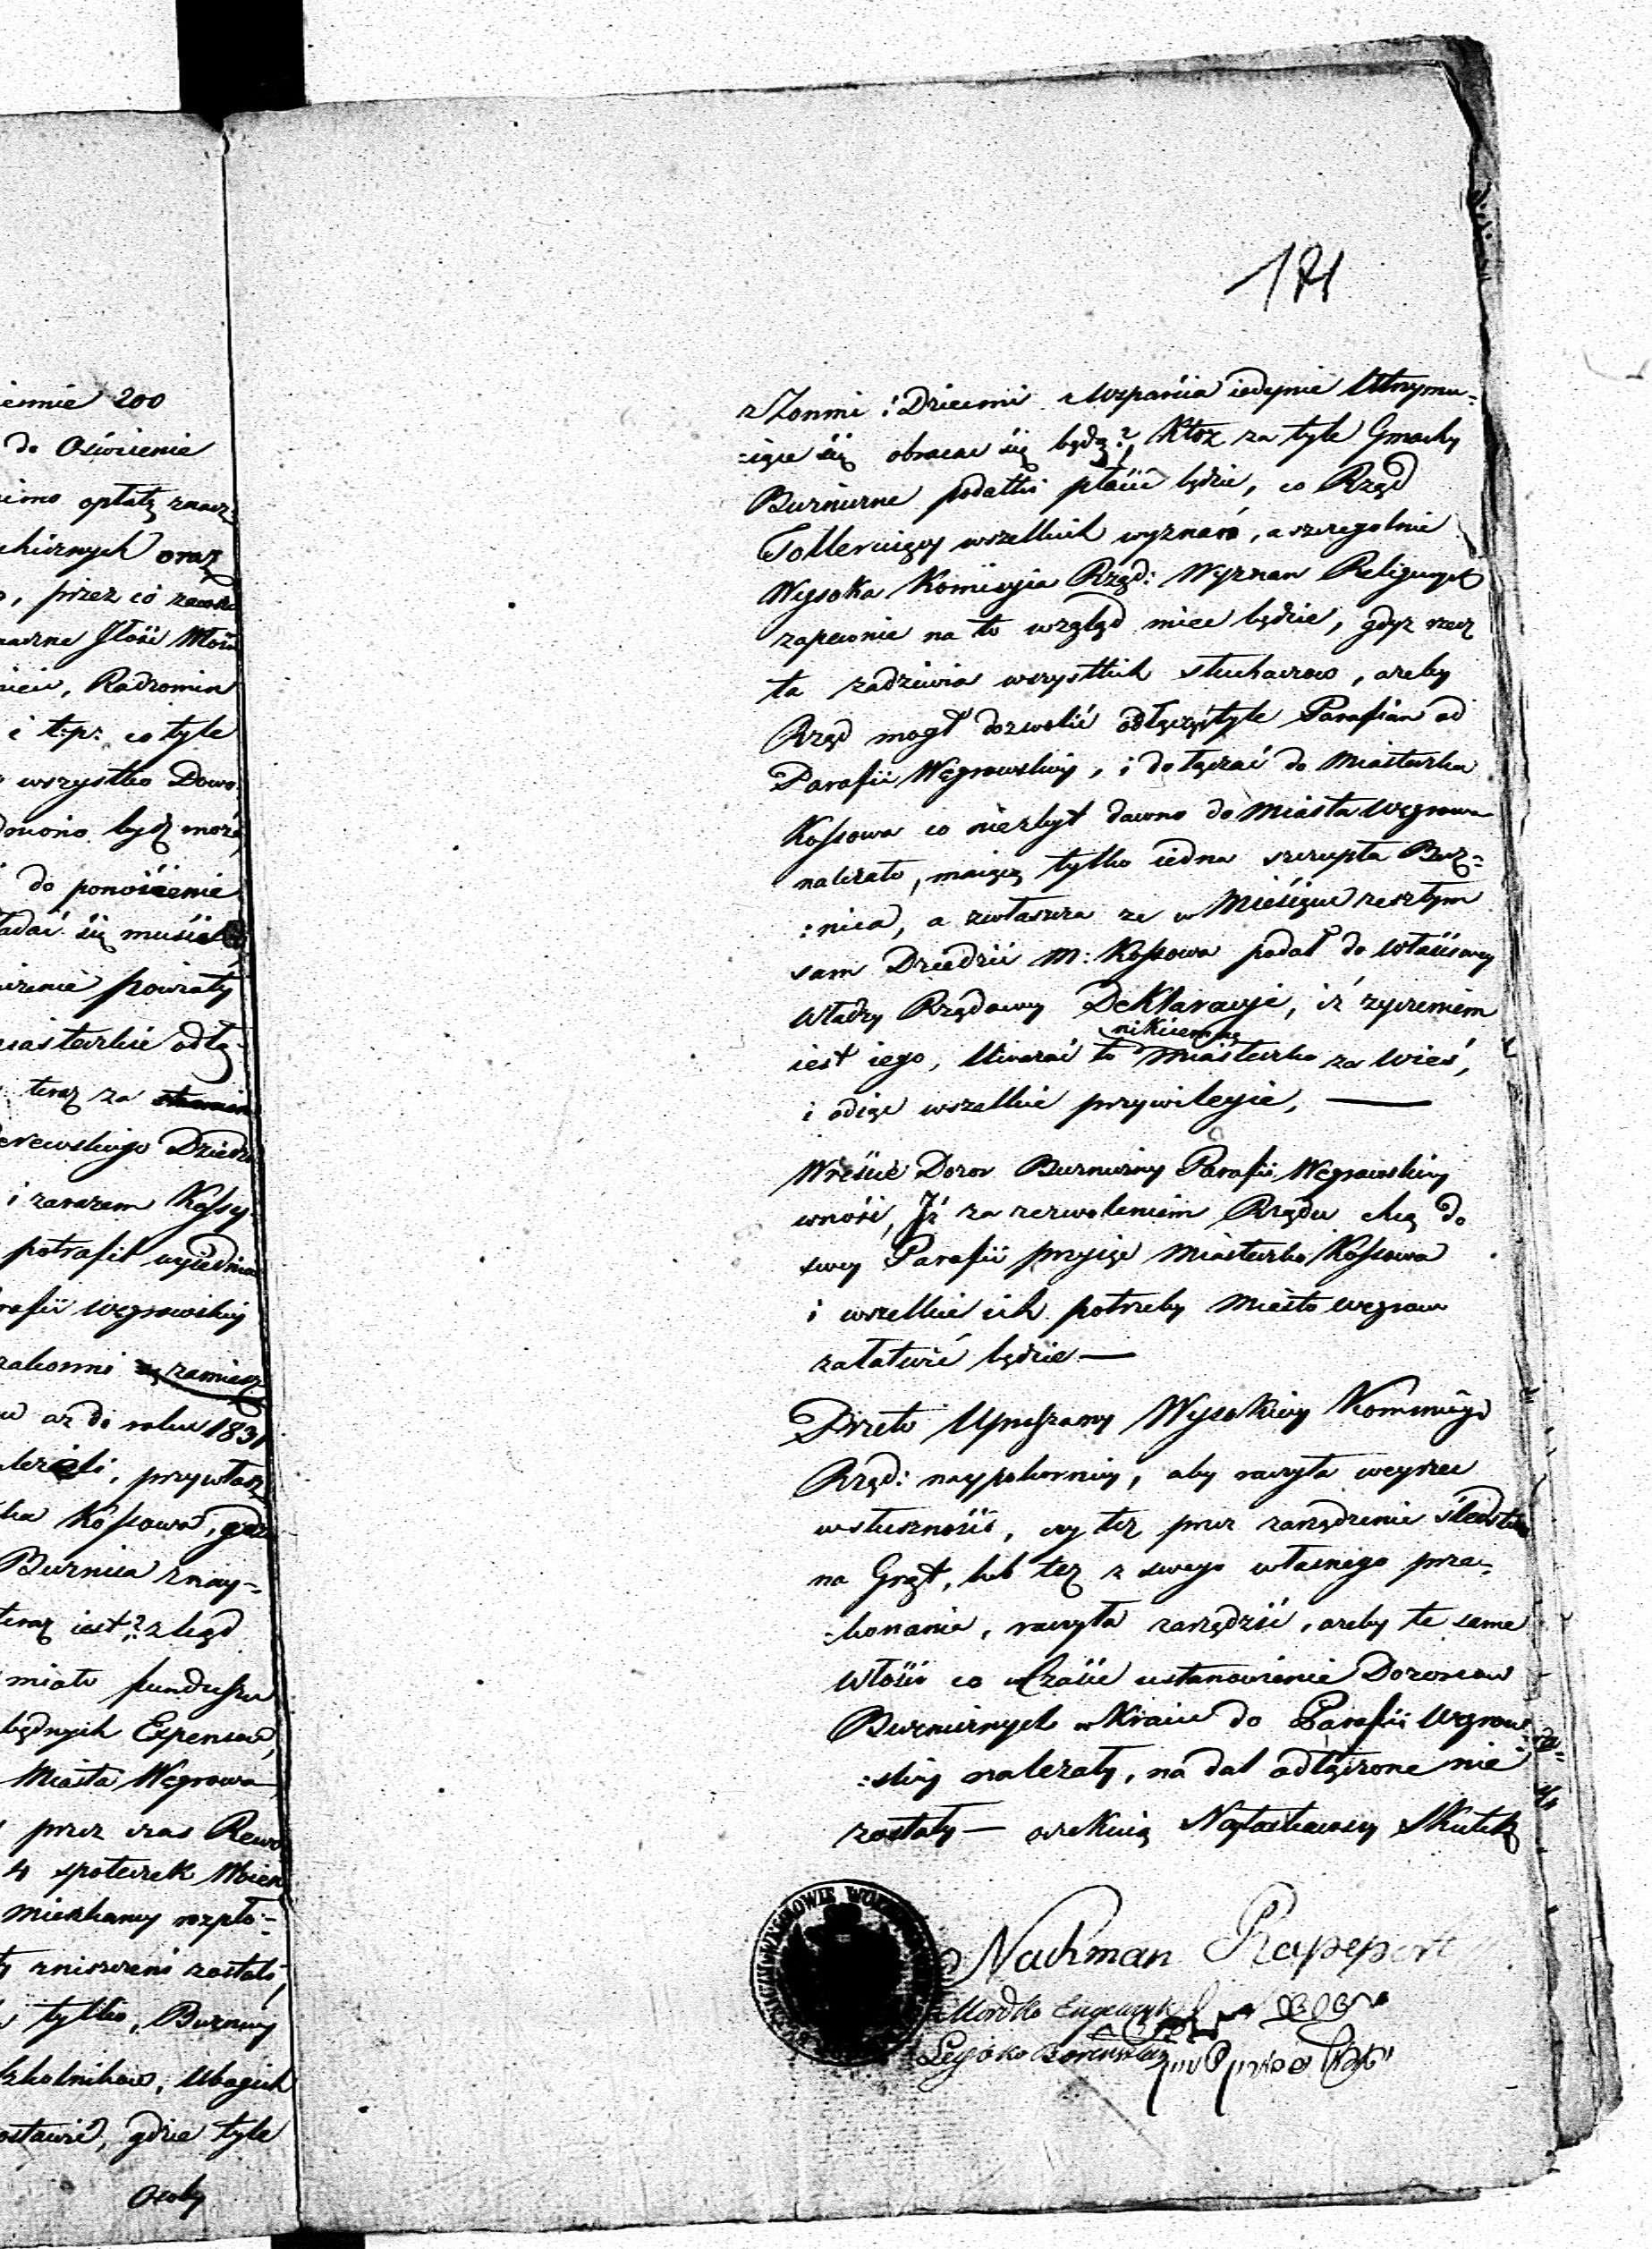 iennie 200
do Oswicenie
simo opłatę znacz=
chicznych oraz
, przez co zawsze
znaczne Jłósci Włosci
niew, Radzomin
i t:p: co tyle
wszystko Dowo
dniono bydz może,
do ponoszenie
adać się musiał
czenie powiaty
miasteczkie odłą=
teraz za
erewskiego Dziedzi
i zarazem Kossy
potrafił wyiednać
rafii Węgrowskiey
zakonni zamiesz
aż do roku 1831
leżeli, przywłasz
ka Kossowa, gdzie
Buznica znay=
teraz iest? zkąd
miało funduszu
będnych Expensow,
Miasta Węgrowa
przez czas Rewo
4 społeczek
mieszkańcy rozpło=
zniszczeni zostali,
tylko, Buznicy
Szkolnikow, Ubogich
ostawić, gdzie tyle
Osoby
181
z Zonmi i Dziecmi z Wsparcia iedynie Utrzymu=
=iące się obracac się będą? Ktoz za tyle Gmachy
Buznicrne podatki płacić będzie, co Rząd
Tolleruiący wszelkich wyznań, a szczegolnie
Wysoka Komissyia Rząd: Wyznan Religiynych
zapewnie na to wzgląd miec będzie, gdyz rzecz
ta zadziwia wszystkich słuchaczow, azeby
Rząd mogł dozwolić odłączyć tyle Parafian od
Parafii Węgrowskiey, i dołączać do Miasteczka
Kossowa co niezbyt dawno do Miasta Węgrowa
należało, maiącą tylko iedna szczupła Buz=
:nica, a zwłaszcza ze w Miesiącu zeszłym
sam Dziedzic M: Kossowa podał do Właściwey
Władzy Rządowey Deklaracyie, iż zyczeniem
nikczemne
iest iego, Uwazać to Miasteczko za Wieś,
i odiąc wszelkie przywileyie, —
Wreście Dozor Buzniczny Parafii Węgrowskiey
wnosi, Jż za zezwoleniem Rządu chcą do
swey Parafii przyiąc Miasteczko Kossowa
i wszelkie ich potrzeby Miasto Węgrow
załatwić będzie —
Przeto Upraszamy Wysokiey Kommissyi
Rząd: naypokorniey, aby raczyła weyrzec
w słuszności, czy tez przez zarządzenie śledztwa
na Gręt, lub tez z swego własnego prze=
:konania, raczyła zarządzić, azeby te same
Włości co w Czasie ustanowienie Dozorow
Buznicznych w Kraiu do Parafii Węgrow
:skiey należały, na dal odłączone nie
zostały — oczekuią Nayłaskawszy Skutek
Nachman Rapeport
Mordko
Leyzko